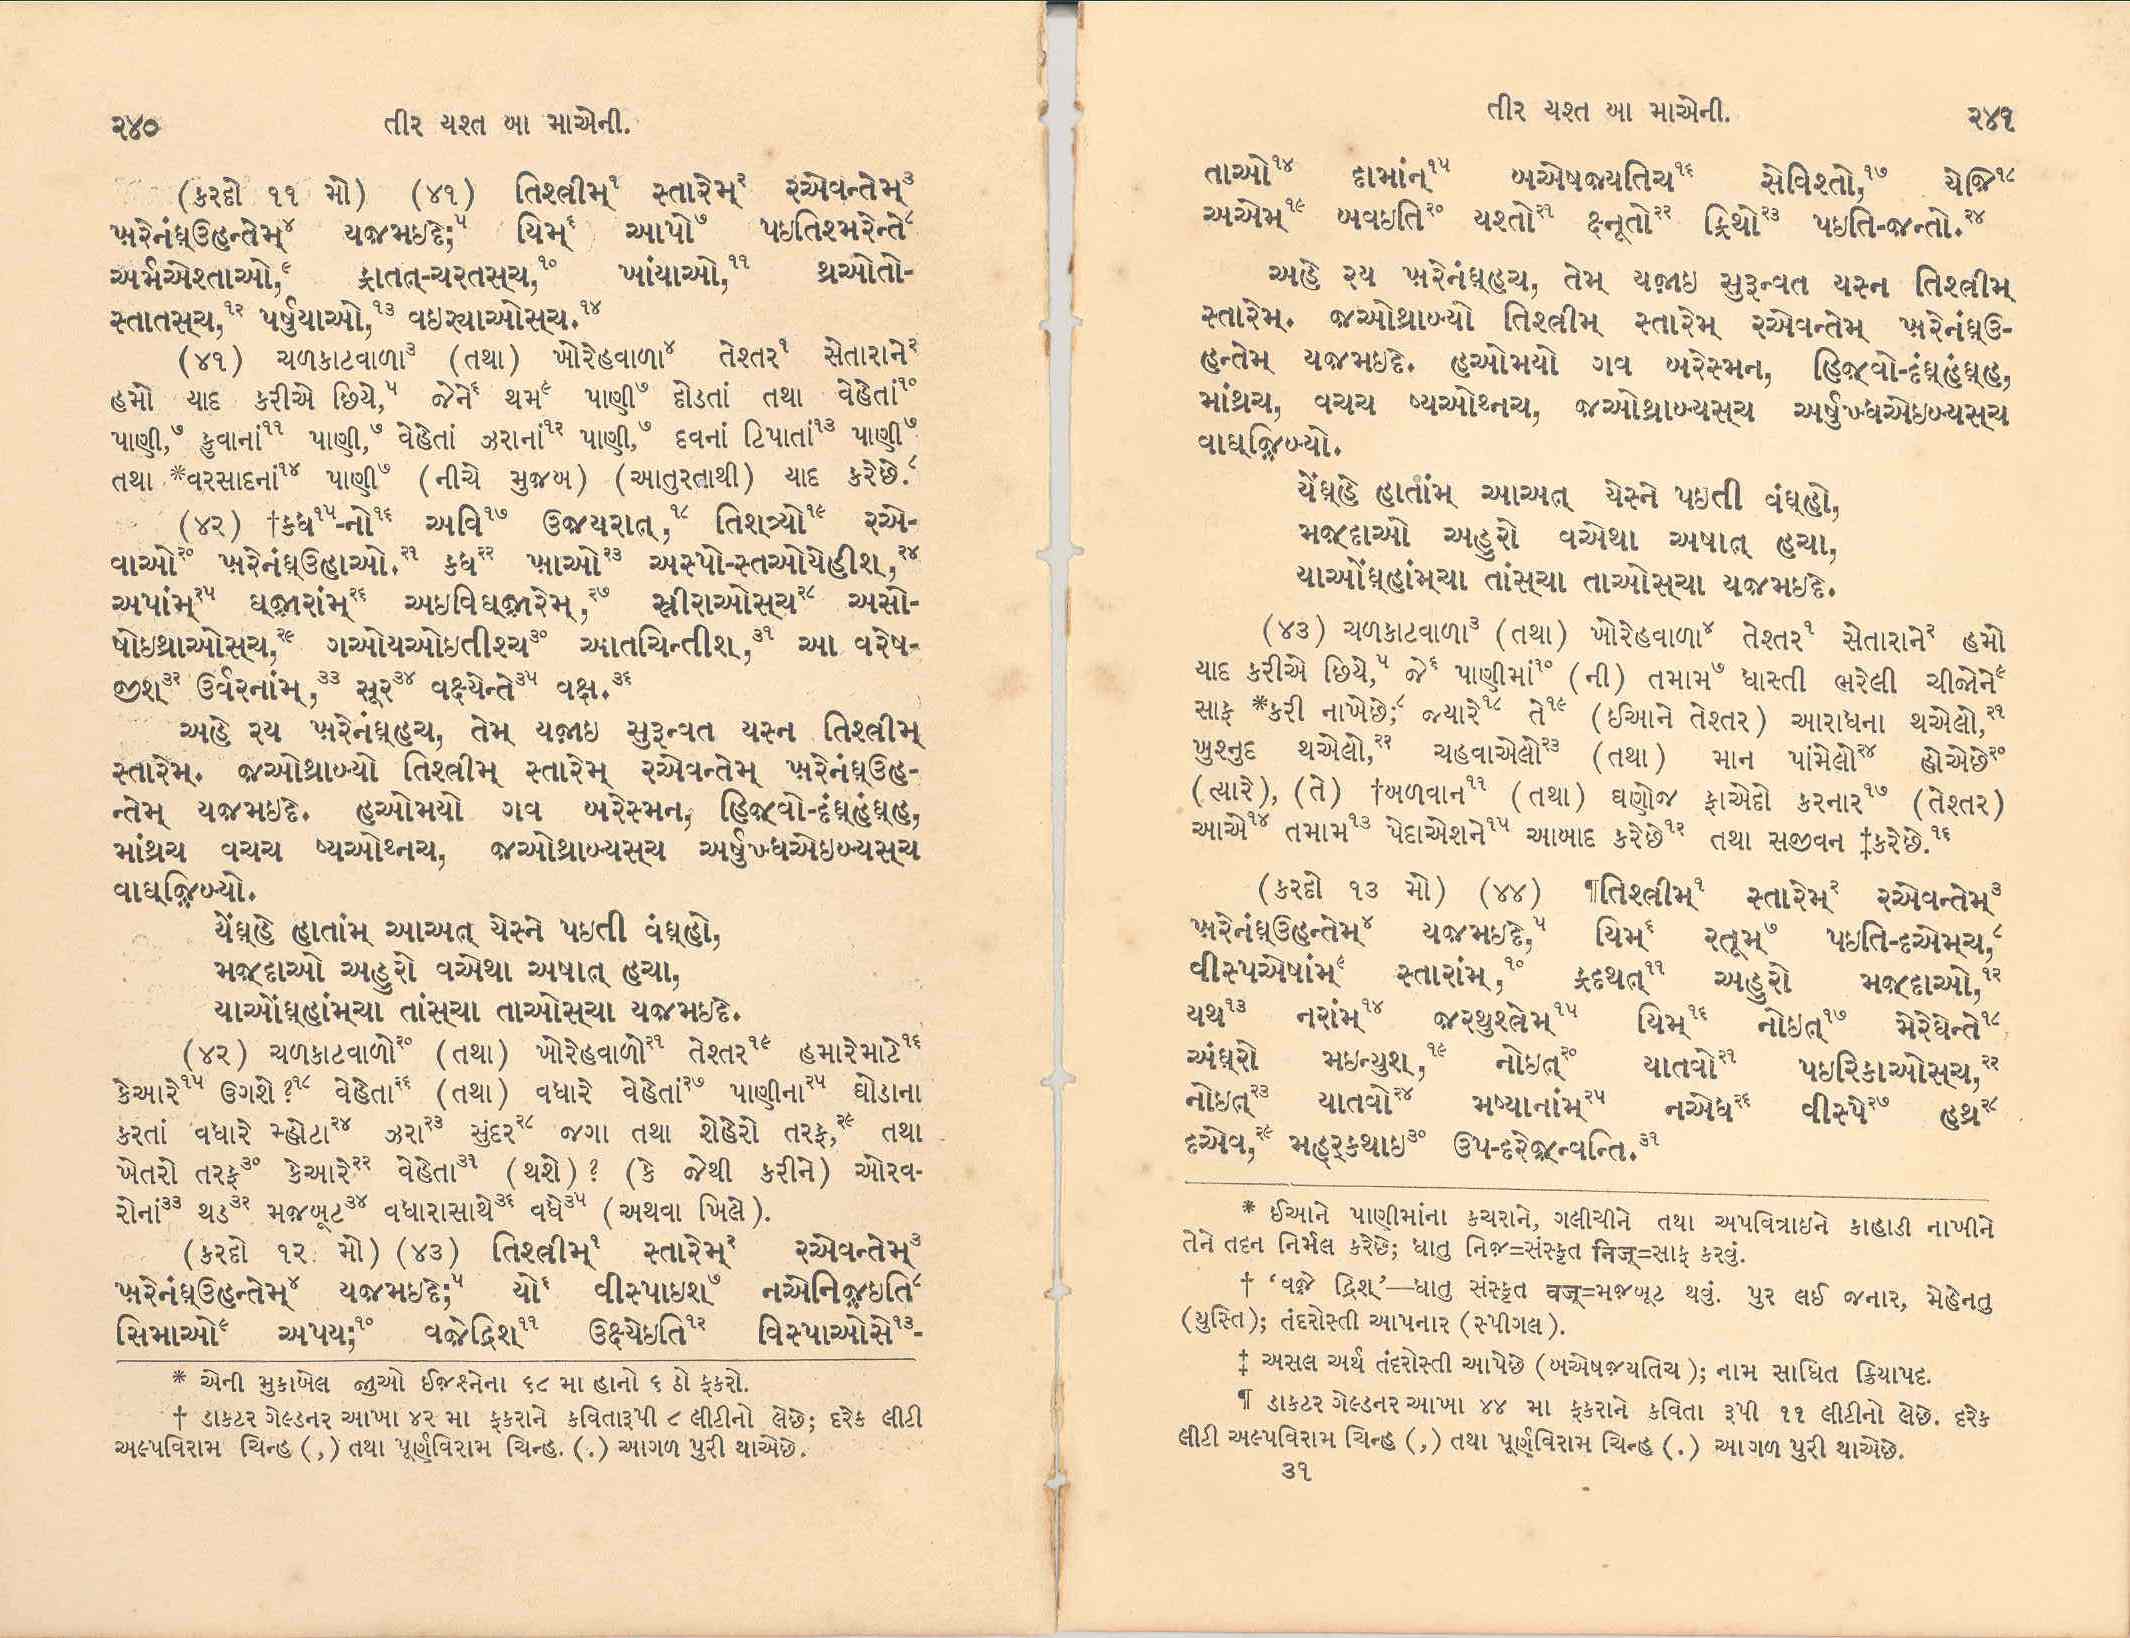 ૨૪૦
તીર યશ્ત બા માએની.
(કરદો ૧૧ મો) (૪૧) તિશ્ત્રીમ્૧ સ્તારેમ્૨ રએવન્તેમ્૩
ખ઼રેનંઘ્ઉહન્તેમ્૪ યજ઼મઇદે;૫ યિમ્૬ આપો૭ પઇતિશ્મરેન્તે૮
અર્મએશ્તાઓ,૯ ફ્રાતત્-ચરતસ્ચ,૧૦ ખાંયાઓ,૧૧ થ્રઓતો-
સ્તાતસ્ચ,૧૨ પર્ષુયાઓ,૧૩ વઇર્યાઓસ્ચ.૧૪
(૪૧) ચળકાટવાળા૩ (તથા) ખોરેહવાળા૪ તેશ્તર૧ સેતારાને૨
હમો યાદ કરીએ છિયે,૫ જેને૬ થમ૯ પાણી૭ દોડતાં તથા વેહેતાં૧૦
પાણી,૭ કુવાનાં૧૧ પાણી,૭ વેહેતાં ઝરાનાં૧૨ પાણી,૭ દવનાં ટિપાતાં૧૩ પાણી૭
તથા *વરસાદનાં૧૪ પાણી૭ (નીચે મુજબ) (આતુરતાથી) યાદ કરેછે.૮
(૪૨) †કધ૧૫-નો૧૬ અવિ૧૭ ઉજ઼યરાત્,૧૮ તિશ્ત્ર્યો૧૯ રએ-
વાઓ૨૦ ખ઼રેનંઘ્ઉહાઓ.૨૧ કધ૨૨ ખાઓ૨૩ અસ્પો-સ્તઓયેહીશ,૨૪
અપાંમ્૨૫ ઘજ઼ારાંમ્૨૬ અઇવિઘજ઼ારેમ્,૨૭ સ્રીરાઓસ્ચ૨૮ અસો-
ષોઇથ્રાઓસ્ચ,૨૯ ગઓયઓઇતીશ્ચ૩૦ આતચિન્તીશ,૩૧ આ વરેષ-
જીશ્૩૨ ઉર્વરનાંમ્,૩૩ સૂર૩૪ વક્ષ્યેન્તે૩૫ વક્ષ.૩૬
અહે રય ખ઼રેનંઘ્હચ, તેમ્ યજ઼ાઇ સુરૂન્વત યસ્ન તિશ્ત્રીમ્
સ્તારેમ્. જ઼ઓથ્રાબ્યો તિશ્ત્રીમ્ સ્તારેમ્ રએવન્તેમ્ ખ઼રેનંઘ્ઉહ-
ન્તેમ્ યજ઼મઇદે. હઓમયો ગવ બરેસ્મન, હિજ઼્વો-દંઘ્હંઘ્હ,
માંથ્રચ વચચ ષ્યઓથ્નચ, જ઼ઓથ્રાબ્યસ્ચ અર્ષુખ્ધએઇબ્યસ્ચ
વાઘ્જ઼િબ્યો.
યેંઘ્હે હાતાંમ્ આઅત્ યેસ્ને પઇતી વંઘ્હો,
મજ઼્દાઓ અહુરો વએથા અષાત્ હચા,
યાઓંઘ્હાંમ્ચા તાંસ્ચા તાઓસ્ચા યજ઼મઇદે.
(૪૨) ચળકાટવાળો૨૦ (તથા) ખોરેહવાળો૨૧ તેશ્તર૧૯ હમારેમાટે૧૬
કેઆરે૧૫ ઉગશે?૧૮ વેહેતા૨૬ (તથા) વધારે વેહેતાં૨૭ પાણીના૨૫ ઘોડાના
કરતાં વધારે મ્હોટા૨૪ ઝરા૨૩ સુંદર૨૮ જગા તથા શેહેરો તરફ,૨૯ તથા
ખેતરો તરફ૩૦ કેઆરે૨૨ વેહેતા૩૧ (થશે)? (કે જેથી કરીને) ઓરવ-
રોનાં૩૩ થડ૩૨ મજબૂટ૩૪ વધારાસાથે૩૬ વધે૩૫ (અથવા ખિલે).
(કરદો ૧૨ મો) (૪૩) તિશ્ત્રીમ્૧ સ્તારેમ્૨ રએવન્તેમ્૩
ખ઼રેનંઘ્ઉહન્તેમ્૪ યજ઼મઇદે;૫ યો૬ વીસ્પાઇશ્૭ નએનિજ઼ઇતિ૮
સિમાઓ૯ અપય;૧૦ વજ઼ેદ્રિશ્૧૧ ઉક્ષ્યેઇતિ૧૨ વિસ્પાઓસે૧૩-
* એની મુકાબેલ જુઓ ઈજશ્નેના ૬૮ મા હાનો ૬ ઠો ફકરો.
† ડાકટર ગેલ્ડનર આખા ૪૨ મા ફકરાને કવિતારૂપી ૮ લીટીનો લેછે; દરેક લીટી
અલ્પવિરામ ચિન્હ (,) તથા પૂર્ણવિરામ ચિન્હ. (.) આગળ પુરી થાએછે.
તીર યશ્ત બા માએની.
૨૪૧
તાઓ૧૪ દામાંન્૧૫ બએષજ઼યતિચ૧૬ સેવિશ્તો,૧૭ યેજ઼િ૧૮
અએમ્૧૯ બવઇતિ૨૦ યશ્તો૨૧ ક્ષ્નૂતો૨૨ ફ્રિથો૨૩ પઇતિ-જ઼ન્તો.૨૪
અહે રય ખ઼રેનંઘ્હચ, તેમ્ યજ઼ાઇ સુરૂન્વત યસ્ન તિશ્ત્રીમ્
સ્તારેમ્. જ઼ઓથ્રાબ્યો તિશ્ત્રીમ્ સ્તારેમ્ રએવન્તેમ્ ખ઼રેનંઘ્ઉ-
હન્તેમ્ યજ઼મઇદે. હઓમયો ગવ બરેસ્મન, હિજ઼્વો-દંઘ્હંઘ્હ,
માંથ્રચ, વચચ ષ્યઓથ્નચ, જ઼ઓથ્રાબ્યસ્ચ અર્ષુખ્ધએઇબ્યસ્ચ
વાઘ્જ઼િબ્યો.
યેંઘ્હે હાતાંમ્ આઅત્ યેસ્ને પઇતી વંઘ્હો,
મજ઼્દાઓ અહુરો વએથા અષાત્ હચા,
યાઓંઘ્હાંમ્ચા તાંસ્ચા તાઓસ્ચા યજ઼મઇદે.
(૪૩) ચળકાટવાળા૩ (તથા) ખોરેહવાળા૪ તેશ્તર૧ સેતારાને૨ હમો
યાદ કરીએ છિયે,૫ જે૬ પાણીમાં૧૦ (ની) તમામ૭ ધાસ્તી ભરેલી ચીજોને૯
સાફ *કરી નાખેછે;૮ જ્યારે૧૮ તે૧૯ (ઈઆને તેશ્તર) આરાધના થએલો,૨૧
ખુશ્નુદ થએલો,૨૨ ચહવાએલો૨૩ (તથા) માન પાંમેલો૨૪ હોએછે૨૦
(ત્યારે), (તે) †બળવાન૧૧ (તથા) ઘણોજ ફાએદો કરનાર૧૭ (તેશ્તર)
આએ૧૪ તમામ૧૩ પેદાએશને૧૫ આબાદ કરેછે૧૨ તથા સજીવન ‡કરેછે.૧૬
(કરદો ૧૩ મો) (૪૪) ¶તિશ્ત્રીમ્૧ સ્તારેમ્૨ રએવન્તેમ્૩
ખ઼રેનંઘ્ઉહન્તેમ્૪ યજ઼મઇદે,૫ યિમ્૬ રતૂમ્૭ પઇતિ-દએમ્ચ,૮
વીસ્પએષાંમ્૯ સ્તારાંમ્,૧૦ ફ્રદથત્૧૧ અહુરો મજ઼્દાઓ,૧૨
યથ૧૩ નરાંમ્૧૪ જ઼રથુશ્ત્રેમ્૧૫ યિમ્૧૬ નોઇત્૧૭ મેરેઘેન્તે૧૮
અંઘ્રો મઇન્યુશ,૧૯ નોઇત્૨૦ યાતવો૨૧ પઇરિકાઓસ્ચ,૨૨
નોઇત્૨૩ યાતવો૨૪ મષ્યાનાંમ્૨૫ નએધ૨૬ વીસ્પે૨૭ હથ્ર૨૮
દએવ,૨૯ મહ્ર્કથાઇ૩૦ ઉપ-દરેજ઼્ન્વન્તિ.૩૧
* ઈઆને પાણીમાંના કચરાને, ગલીચીને તથા અપવિત્રાઇને કાહાડી નાખીને
તેને તદન નિર્મલ કરેછે; ધાતુ નિજ઼=સંસ્કૃત निज्=સાફ કરવું.
† ‘વજ઼ે દ્રિશ્’—ધાતુ સંસ્કૃત वज्=મજબૂટ થવું. પુર લઈ જનાર, મેહેનતુ
(યુસ્તિ); તંદરોસ્તી આપનાર (સ્પીગલ).
‡ અસલ અર્થ તંદરોસ્તી આપેછે (બએષજ઼યતિચ); નામ સાધિત ક્રિયાપદ.
¶ ડાકટર ગેલ્ડનર આખા ૪૪ મા ફકરાને કવિતા રૂપી ૧૧ લીટીનો લેછે. દરેક
લીટી અલ્પવિરામ ચિન્હ (,) તથા પૂર્ણવિરામ ચિન્હ (.) આગળ પુરી થાએછે.
૩૧